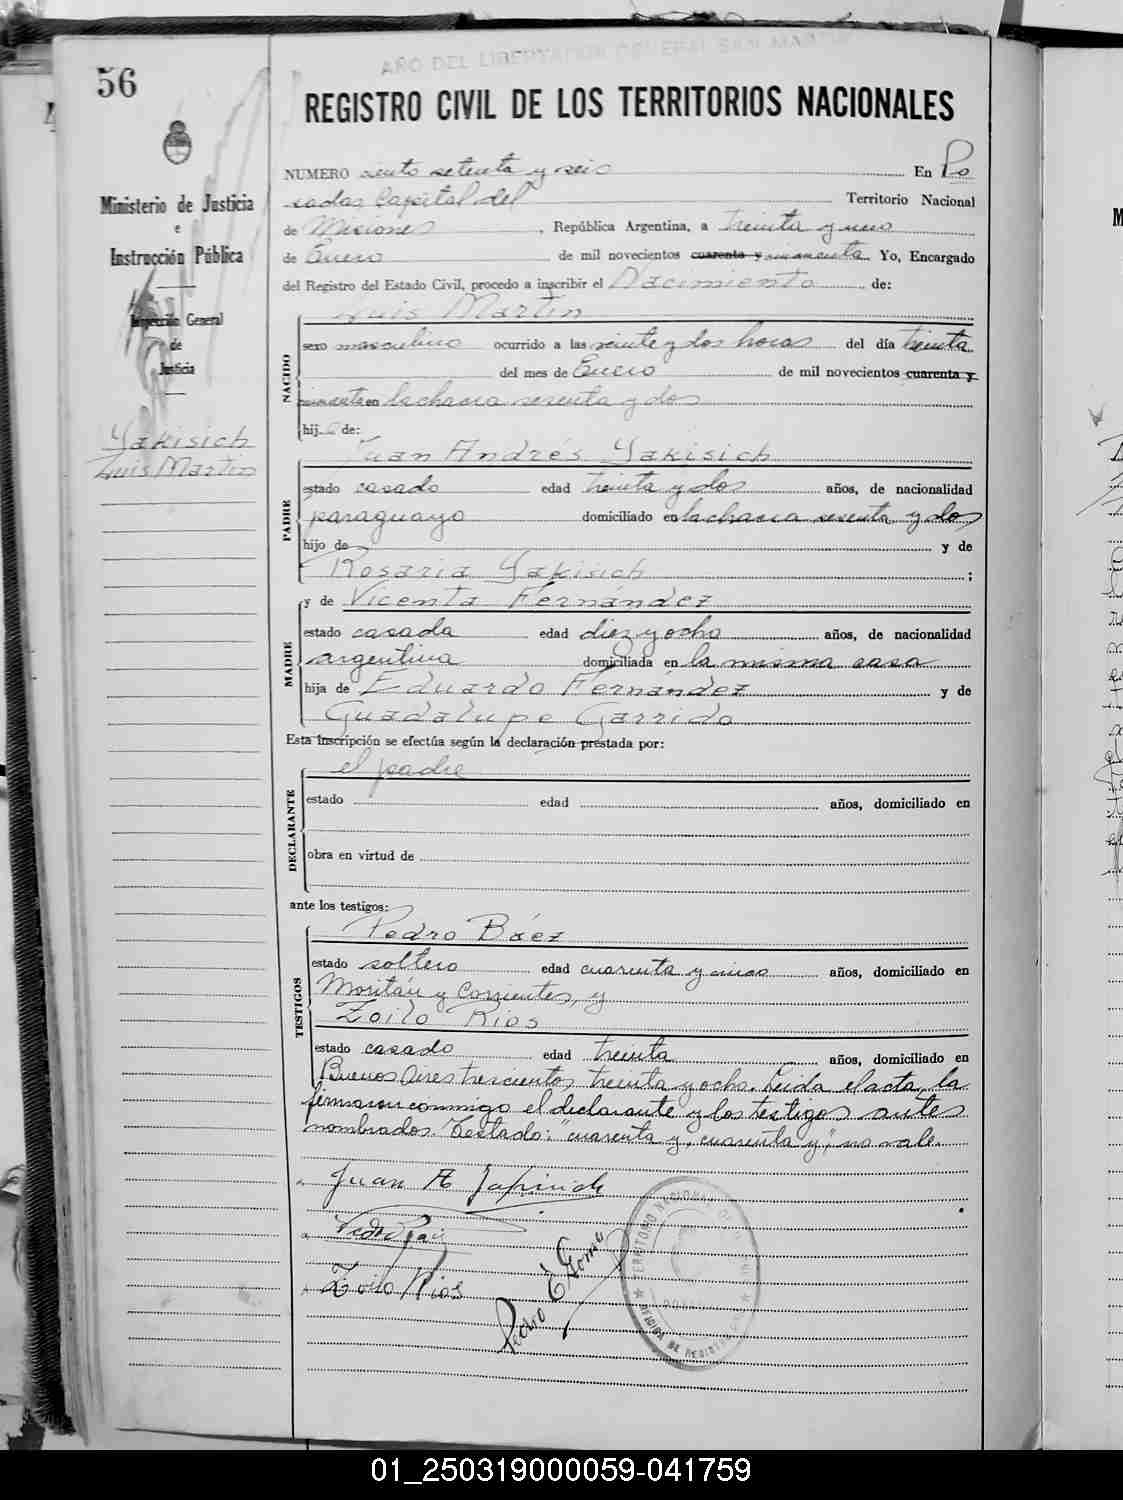 AÑO DEL LIBERTADOR GENERAL SAN MARTIN
56
REGISTRO CIVIL DE LOS TERRITORIOS NACIONALES
Ministerio de Justicia
e
Instrucción Pública
Inspección General
de
Justicia
Yakisich
Luis Martin
NUMERO ciento setenta y seis En Po
sadas Capital del Territorio Nacional
de Misiones, República Argentina, a treinta y uno
de Enero de mil novecientos cuarenta y cincuenta Yo, Encargado
del Registro del Estado Civil, procedo a inscribir el Nacimiento de:
Luis Martin
NACIDO
sexo masculino ocurrido a las veinte y dos horas del día treinta
del mes de Enero de mil novecientos cuarenta y
cincuenta en la chacra sesenta y dos
hijo de:
Juan Andrés Yakisich
PADRE
estado casado edad treinta y dos años, de nacionalidad
paraguayo domiciliado en la chacra sesenta y dos
hijo de y de
Rosaria Yakisich ;
y de Vicenta Fernández
MADRE
estado casada edad diez y ocho años, de nacionalidad
argentina domiciliada en la misma casa
hija de Eduardo Fernández y de
Guadalupe Garrido
Esta inscripción se efectúa según la declaración prestada por:
el padre
DECLARANTE
estado edad años, domiciliado en
obra en virtud de
ante los testigos:
Pedro Báez
TESTIGOS
estado soltero edad cuarenta y cinco años, domiciliado en
y Corrientes, y
Zoilo Rios
estado casado edad treinta años, domiciliado en
Buenos Aires trescientos treinta y ocho. Leida el acta, la
firmaron conmigo el declarante y los testigos antes
nombrados. Testado: "cuarenta y, cuarenta y," no vale.
Juan A Yakisich
Pedro Baez
Zoilo Rios
Pedro E Gomez
TERRITORIO NACIONAL DE
OFICINA DE REGISTRO
01_250319000059-041759